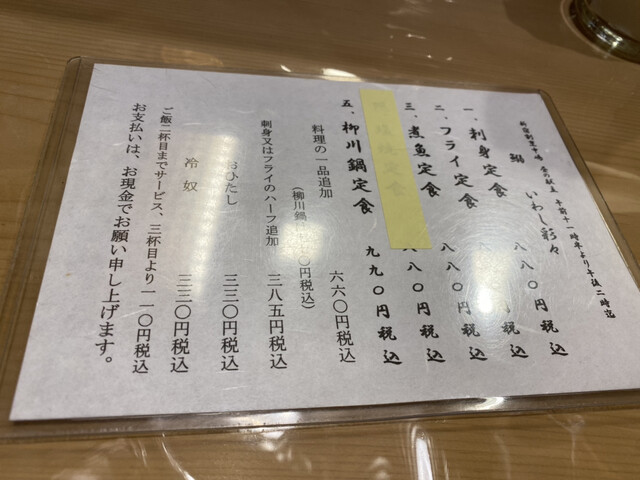 新宿割烹中嶋 昼の献立 午前十一時半より午後二時迄
鰯 いわし彩々
一、刺身定食 八八〇円税込
二、フライ定食 八八〇円税込
三、煮魚定食 八八〇円税込
八八〇円税込
五、柳川鍋定食 九九〇円税込
料理の一品追加 六六〇円税込
(柳川鍋 〇円税込)
刺身又はフライのハーフ追加 三八五円税込
おひたし 三三〇円税込
冷奴 三三〇円税込
ご飯二杯目までサービス、三杯目より一一〇円税込
お支払いは、お現金でお願い申し上げます。